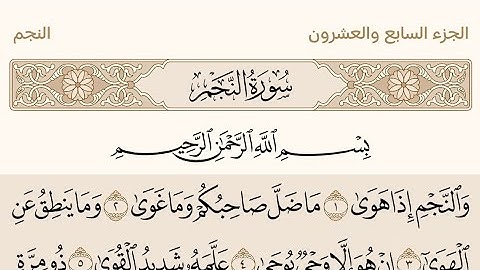 الجزء السابع والعشرون النجم
سُورَةُ النَّجْمِ
بِسْمِ اللَّهِ الرَّحْمَٰنِ الرَّحِيمِ
وَالنَّجْمِ إِذَا هَوَىٰ ١ مَا ضَلَّ صَاحِبُكُمْ وَمَا غَوَىٰ ٢ وَمَا يَنطِقُ عَنِ
الْهَوَىٰ ٣ إِنْ هُوَ إِلَّا وَحْيٌ يُوحَىٰ ٤ عَلَّمَهُ شَدِيدُ الْقُوَىٰ ٥ ذُو مِرَّةٍ